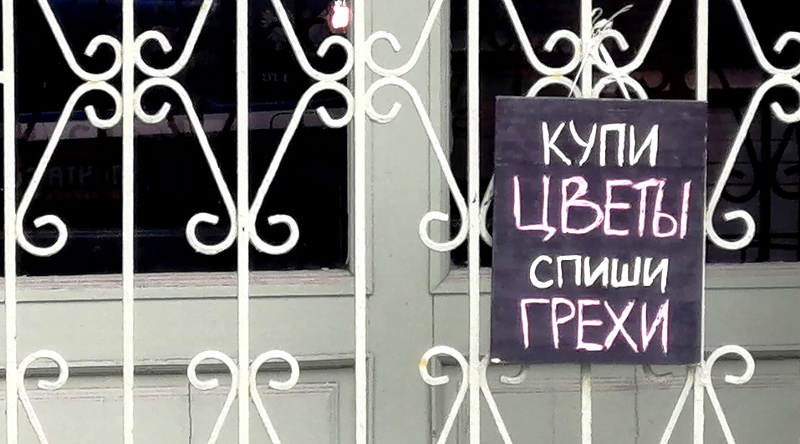 КУПИ
ЦВЕТЫ
СПИШИ
ГРЕХИ